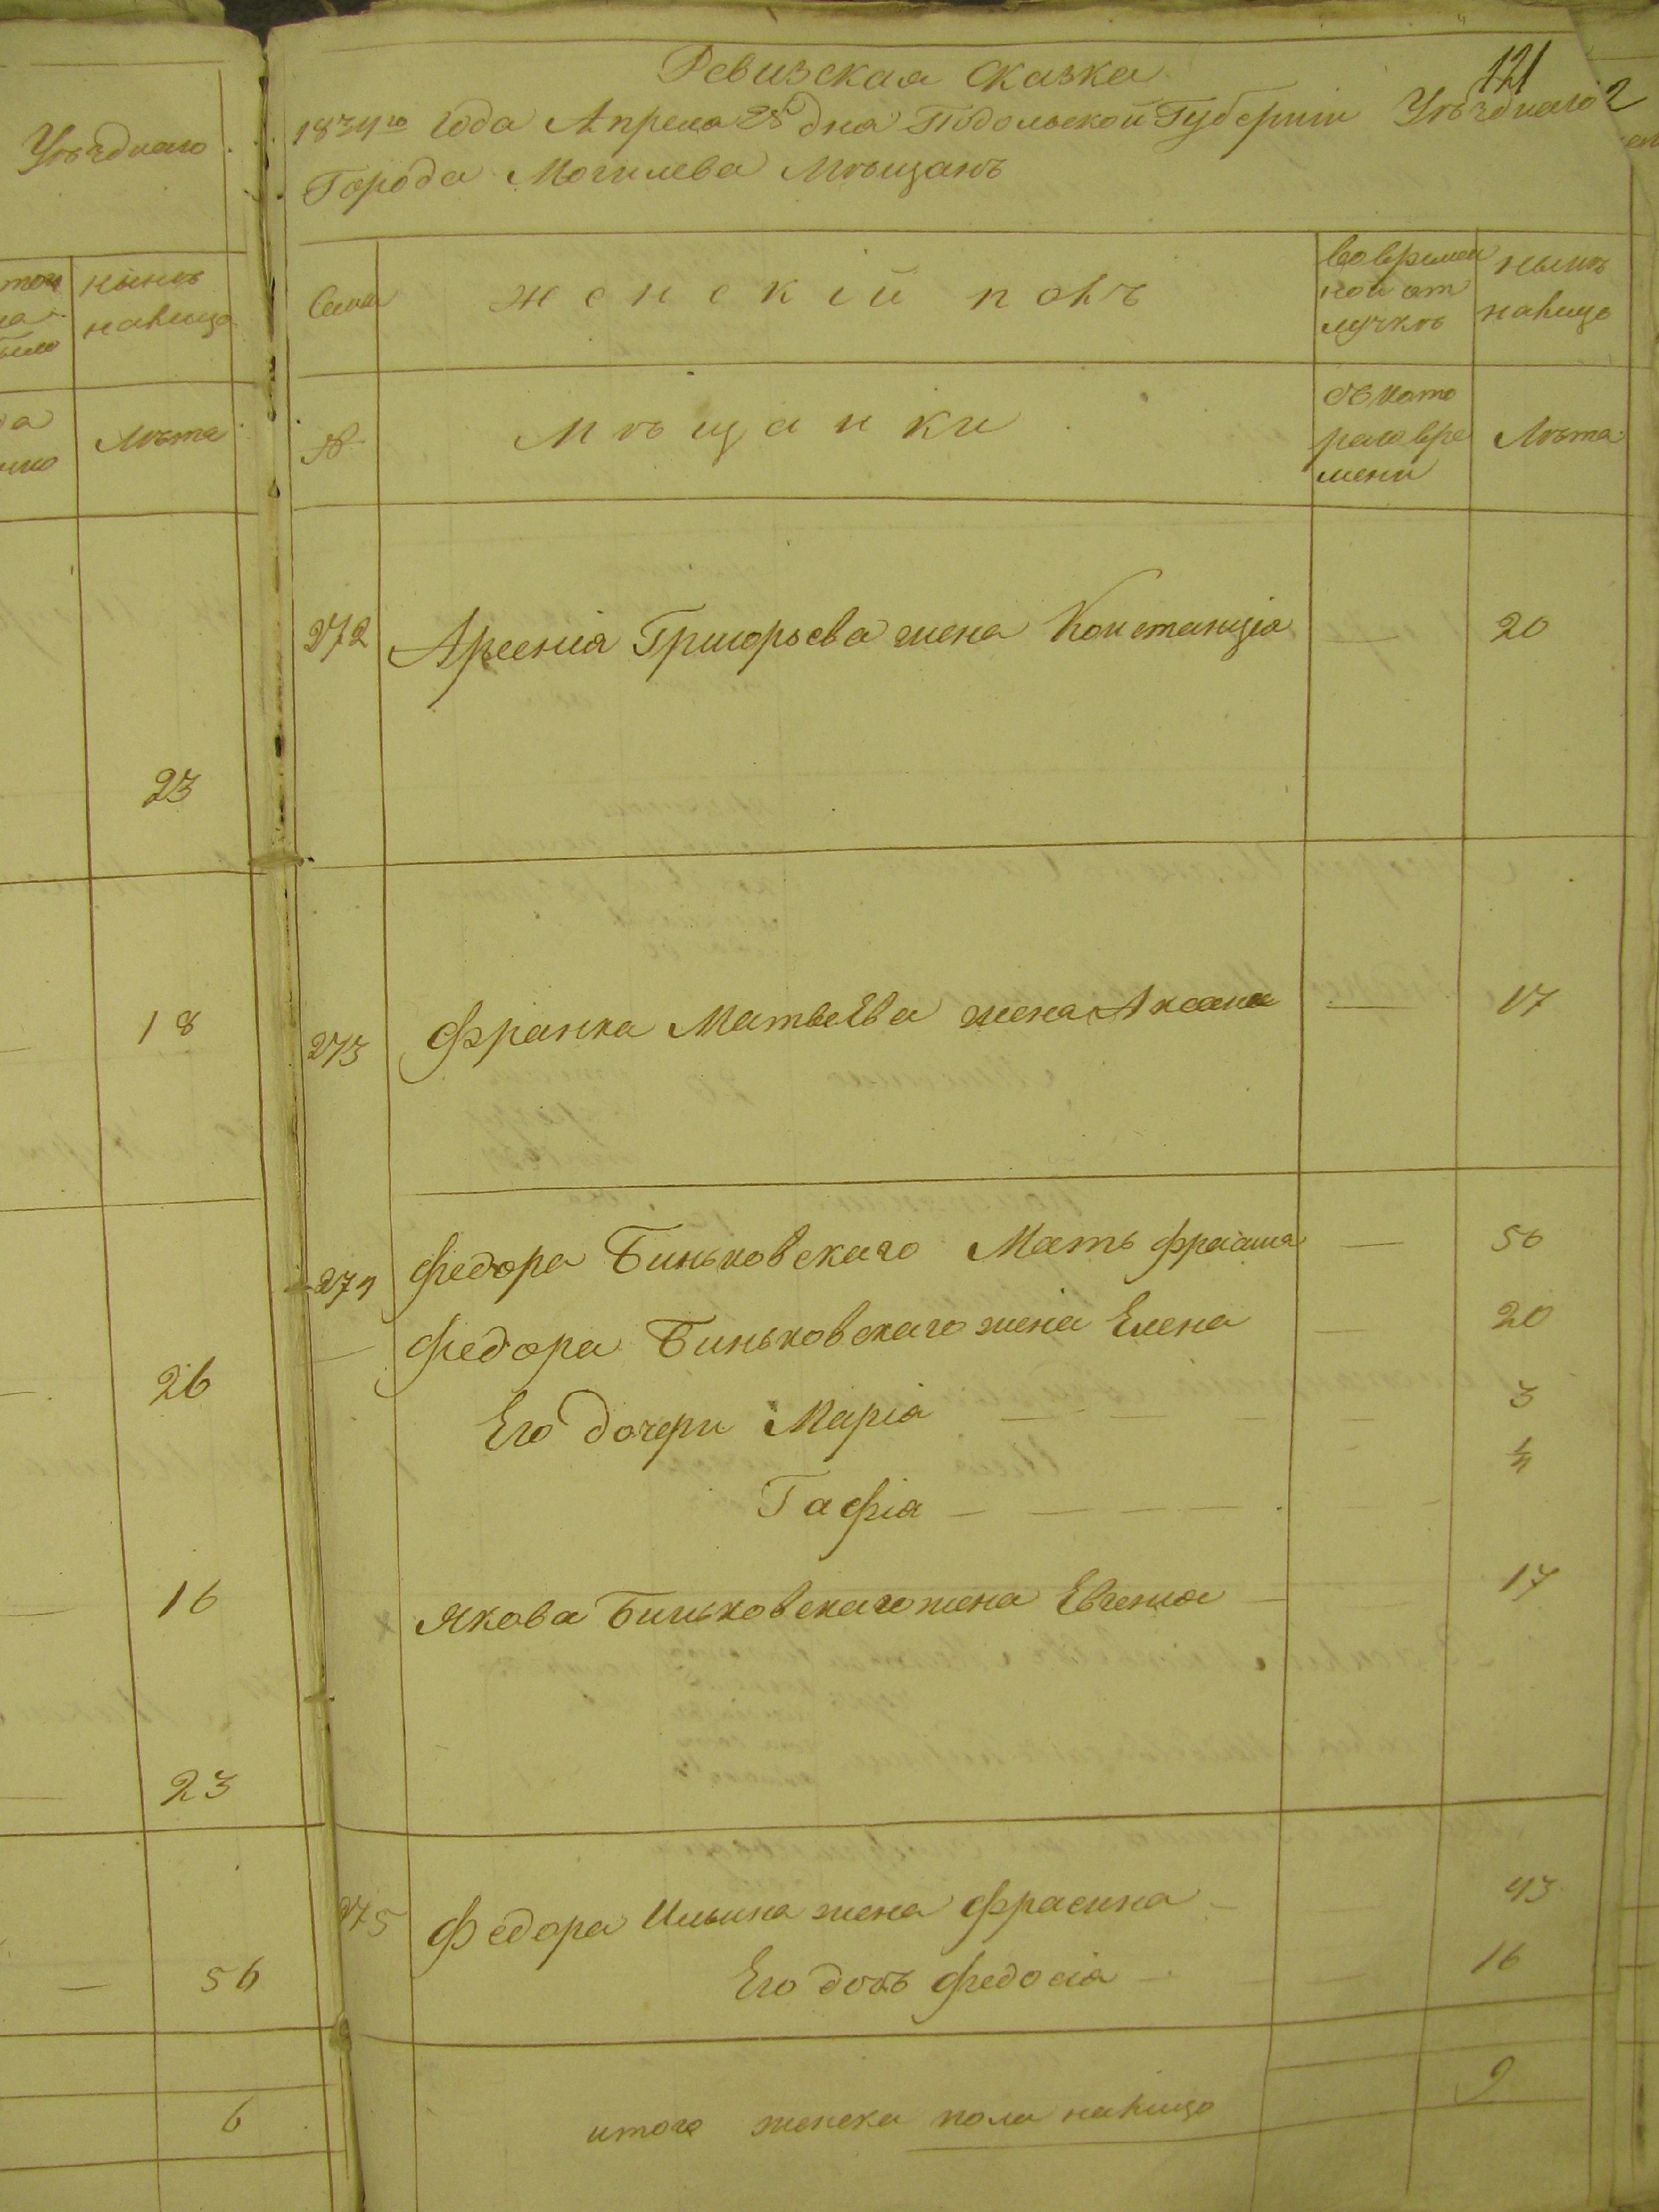 Уѣзднаго
нынѣ
налицо
Лѣта
23
18
26
16
23
56
6
121
Ревизская Сказка
1834го года Апреля 25 дня Подольской Губерніи Уѣзднаго
Города Могилева Мѣщанъ
Семьи
женскій полъ
во времен
ной от
лучкѣ
нынѣ
налицо
№
Мѣщанки
съ кото
раго вре
мени
Лѣта
272 Арсенія Григорьева жена Констанція — 20
273 Франка Матвеѣва жена Аксана — 17
274 Федора Биньковскаго Мать — 56
Федора Биньковскаго жена Елена — 20
Его дочери Марія — — — 3
Гафія — — — — ½
Якова Биньковскаго жена Евгения — 17
275 Федора Ильина жена Фрасина — 43
Его дочь Федосія — 16
итого женска пола налицо 9